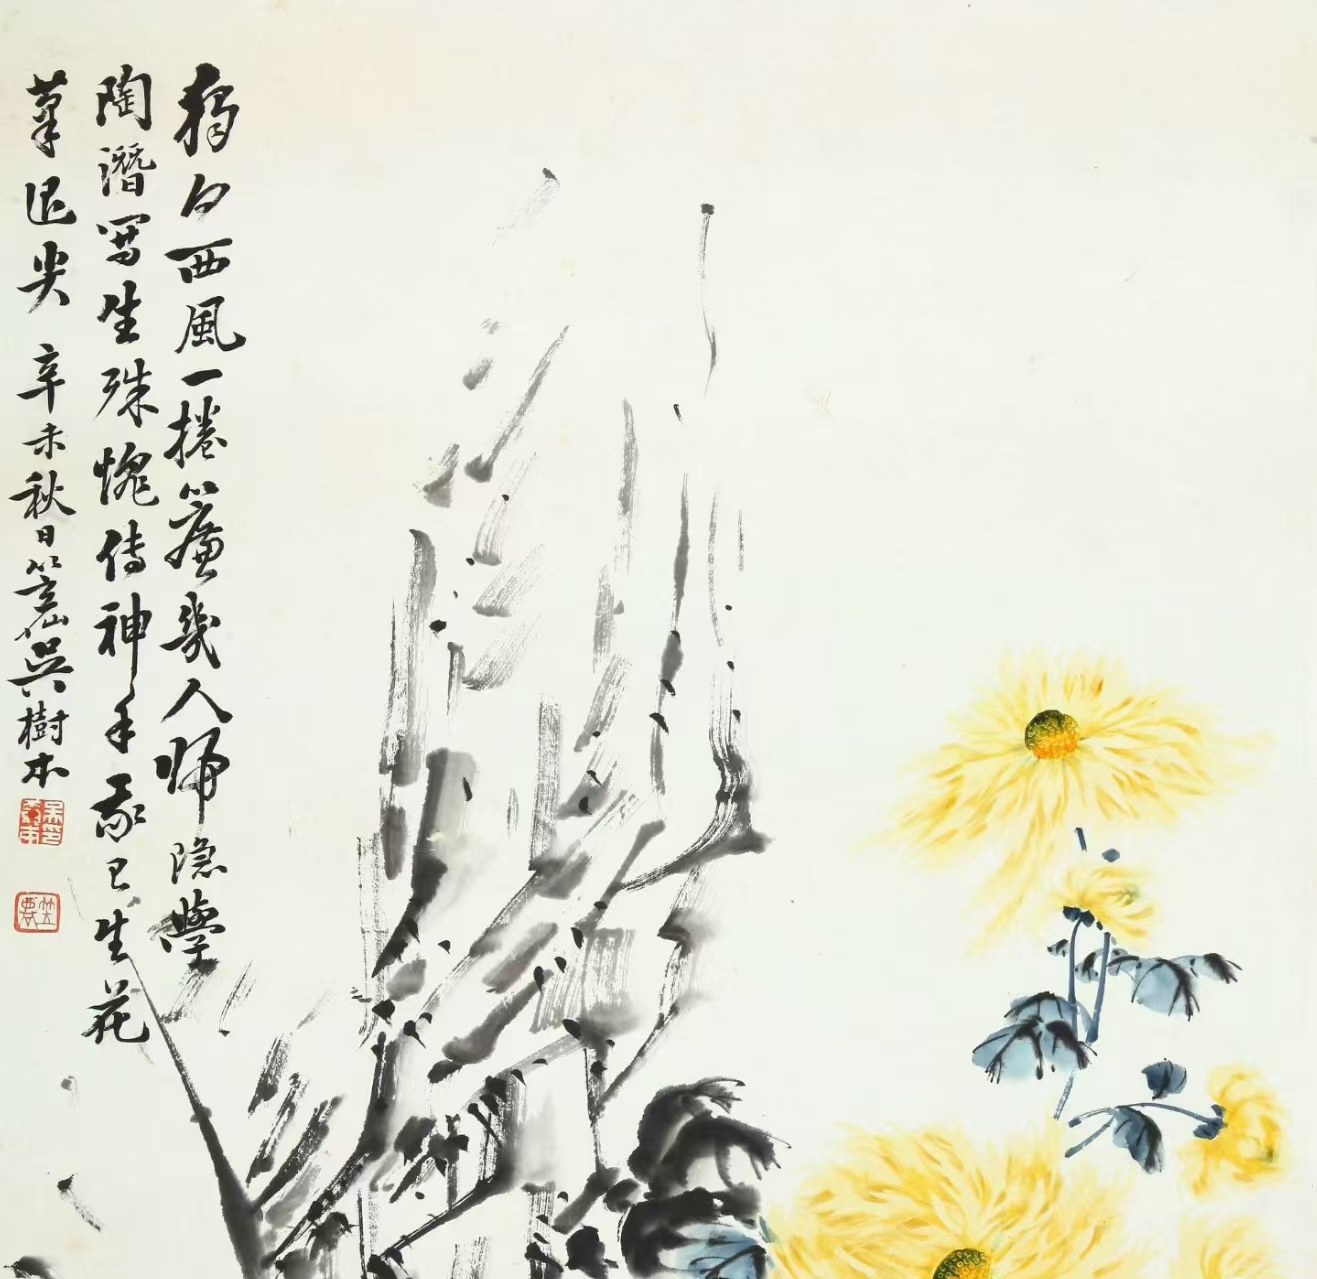 獨白西風一捲簾幾人師隱學
陶潛寫生殊愧傳神手我已生花
筆退尖 辛未秋日笠嵒吳樹本